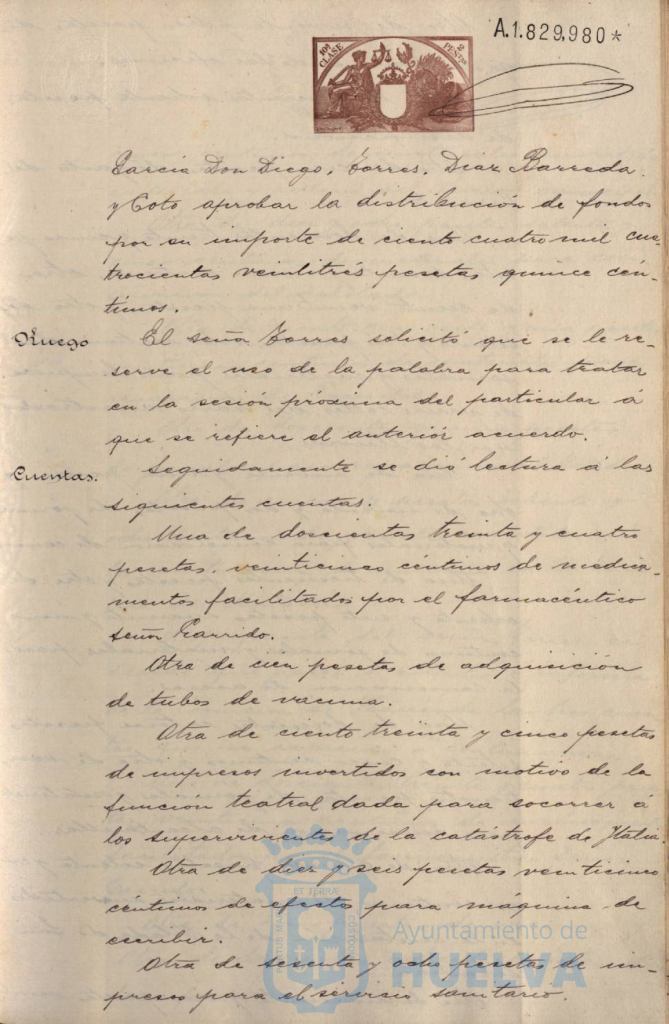 A.1.829,980*
10ª CLASE
2 PESETAS
Garcia Don Diego, Torres, Diaz Barreda
y Coto aprobar la distribución de fondos
por su importe de ciento cuatro mil cua-
trocientas veintitrés pesetas quince cén-
timos.
Ruego
El señor Torres solicitó que se le re-
serve el uso de la palabra para tratar
en la sesión próxima del particular á
que se refiere el anteriór acuerdo.
Cuentas.
Seguidamente se dió lectura á las
siguientes cuentas.
Una de doscientas treinta y cuatro
pesetas, veinticinco céntimos de medica-
mentos facilitados por el farmacéutico
señor Garrido.
Otra de cien pesetas de adquisición
de tubos de vacuna.
Otra de ciento treinta y cinco pesetas
de impresos invertidos con motivo de la
función teatral dada para socorrer á
los supervivientes de la catástrofe de Italia.
Otra de diez y seis pesetas veinticinco
céntimos de efectos para máquina de
escribir.
Otra de sesenta y ocho pesetas de im-
presos para el servicio sanitario.
Ayuntamiento de
HUELVA